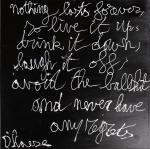 nothing lasts forever,
so live it up,
drink it down,
laugh it off,
avoid the bullshit
and never have
any regrets